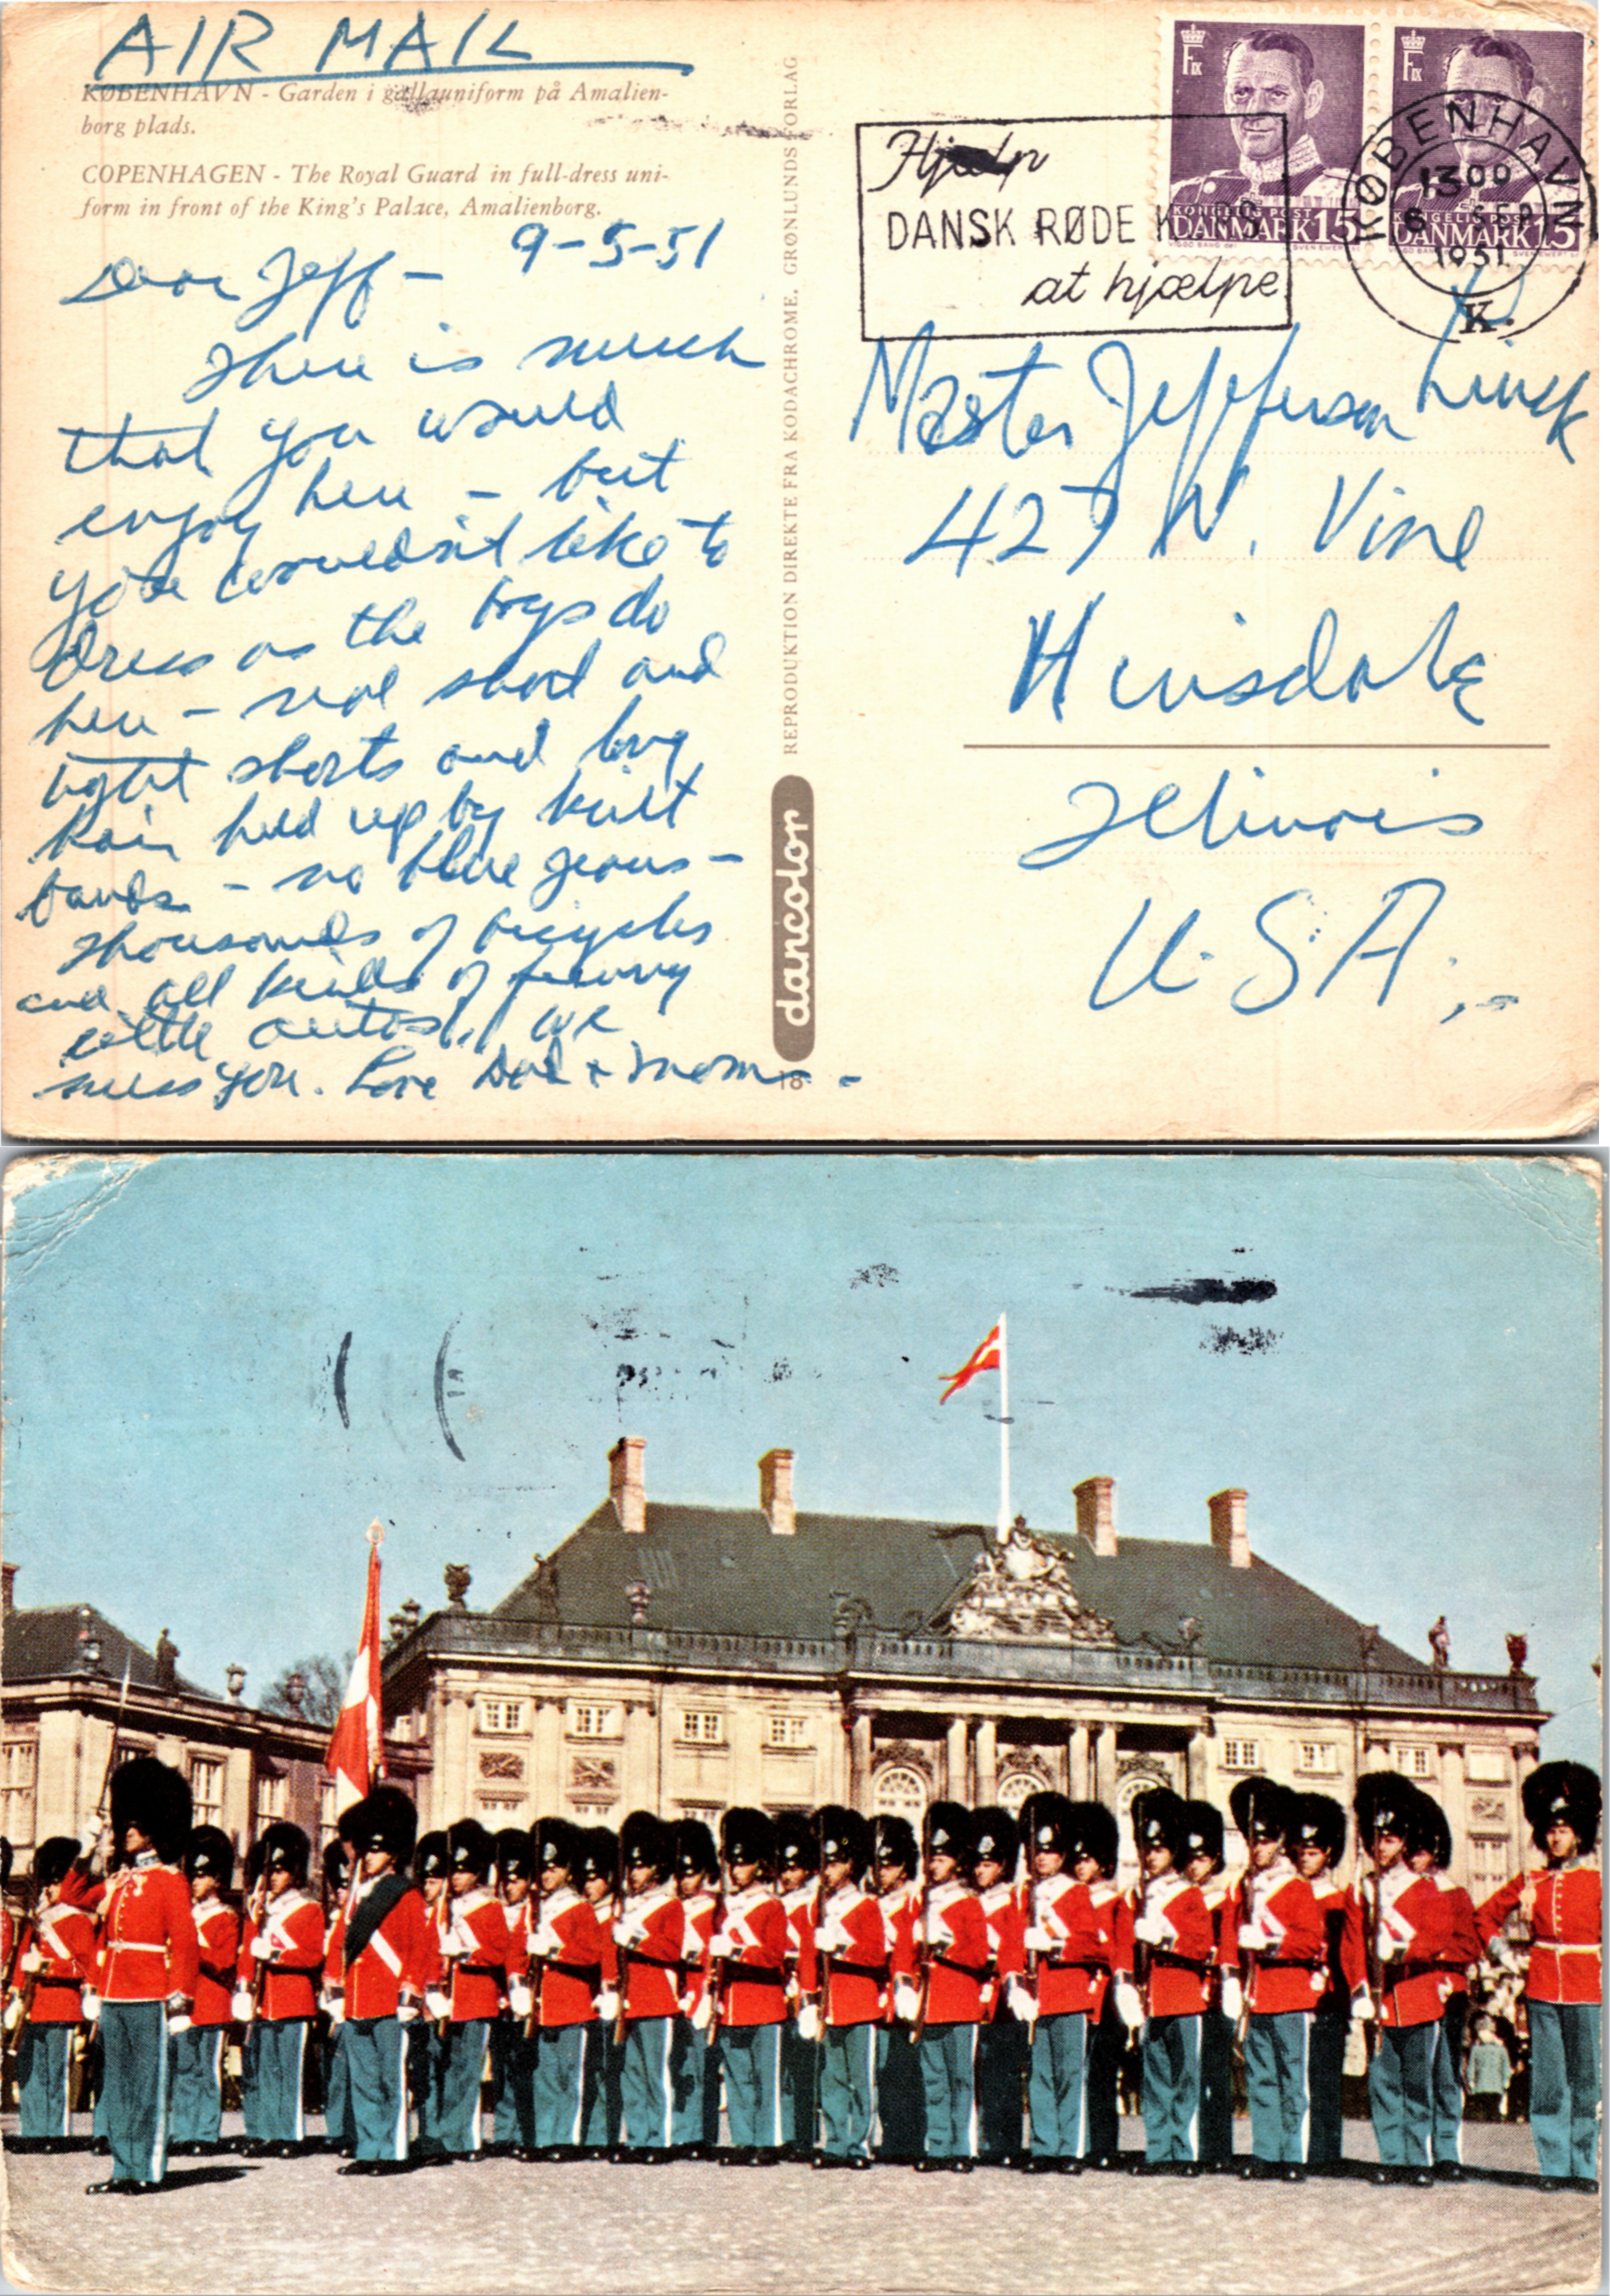 AIR MAIL
KØBENHAVN - Garden i gallauniform på Amalien-
borg plads.
COPENHAGEN - The Royal Guard in full-dress uni-
form in front of the King's Palace, Amalienborg.
9-5-51
Dear Jeff -
There is much
that you would
enjoy here - but
you wouldn't like to
dress as the boys do
here - real short and
tight shorts and long
hair held up by
bands - no blue jeans -
thousands of bicycles
and all kinds of funny
little autos. We
miss you. Love Dad + Mom -
REPRODUKTION DIREKTE FRA KODACHROME. GRØNLUNDS FORLAG
dancolor
18
Hjælp
DANSK RØDE KORS
at hjælpe
F IX
KONGELIG POST
DANMARK 15
F IX
KONGELIG POST
DANMARK 15
KØBENHAVN
1300
6 SEP
1951
K.
Master Jefferson
427 N. Vine
Hinsdale
Illinois
U.S.A.